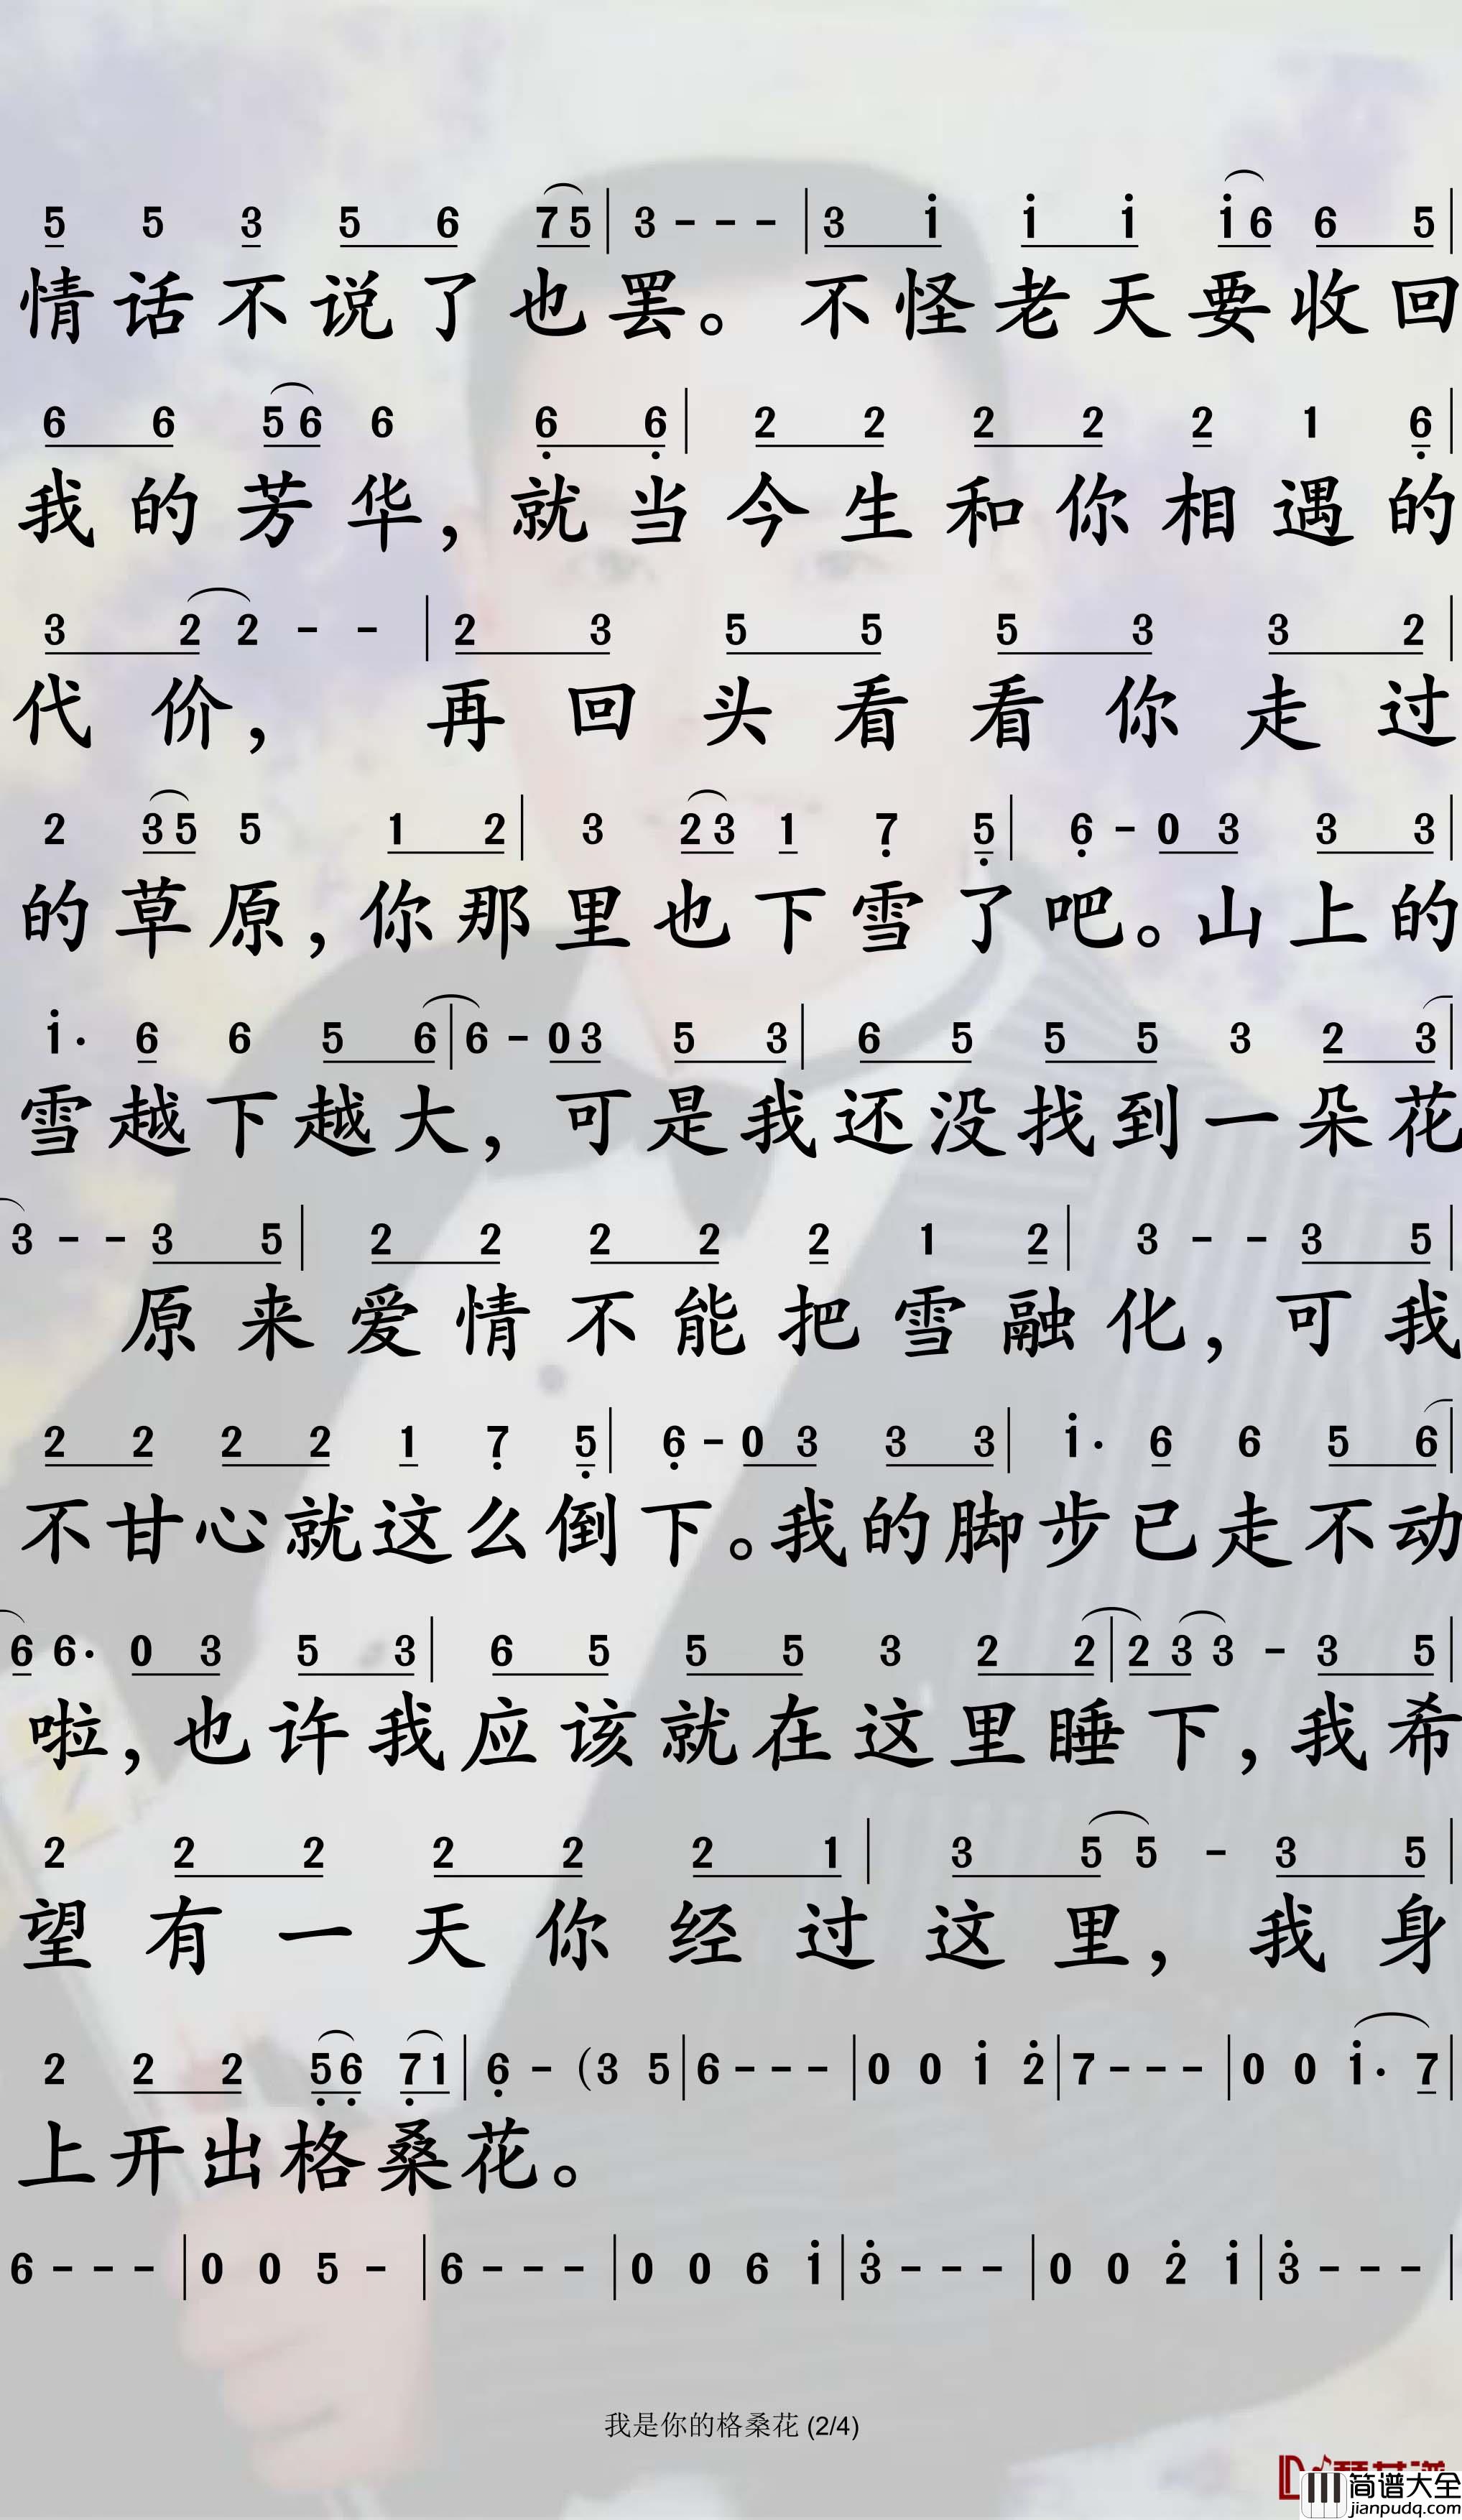 5 5 3 5 6 7 5 | 3 - - - | 3 i i i i 6 6 5 |
情话不说了也罢。不怪老天要收回
6 6 5 6 6 6 6 | 2 2 2 2 2 1 6 |
我的芳华，就当今生和你相遇的
3 2 2 - - | 2 3 5 5 5 3 3 2 |
代价，再回头看看你走过
2 3 5 5 1 2 | 3 2 3 1 7 5 | 6 - 0 3 3 3 |
的草原，你那里也下雪了吧。山上的
i · 6 6 5 6 | 6 - 0 3 5 3 | 6 5 5 5 3 2 3 |
雪越下越大，可是我还没找到一朵花
3 - - 3 5 | 2 2 2 2 2 1 2 | 3 - - 3 5 |
原来爱情不能把雪融化，可我
2 2 2 2 1 7 5 | 6 - 0 3 3 3 | i · 6 6 5 6 |
不甘心就这么倒下。我的脚步已走不动
6 6 · 0 3 5 3 | 6 5 5 5 3 2 2 | 2 3 3 - 3 5 |
啦，也许我应该就在这里睡下，我希
2 2 2 2 2 2 1 | 3 5 5 - 3 5 |
望有一天你经过这里，我身
2 2 2 5 6 7 1 | 6 - (3 5 | 6 - - - | 0 0 i 2 | 7 - - - | 0 0 i · 7 |
上开出格桑花。
6 - - - | 0 0 5 - | 6 - - - | 0 0 6 i | 3 - - - | 0 0 2 i | 3 - - - |
我是你的格桑花 (2/4)
简谱大全
jianpudq.com